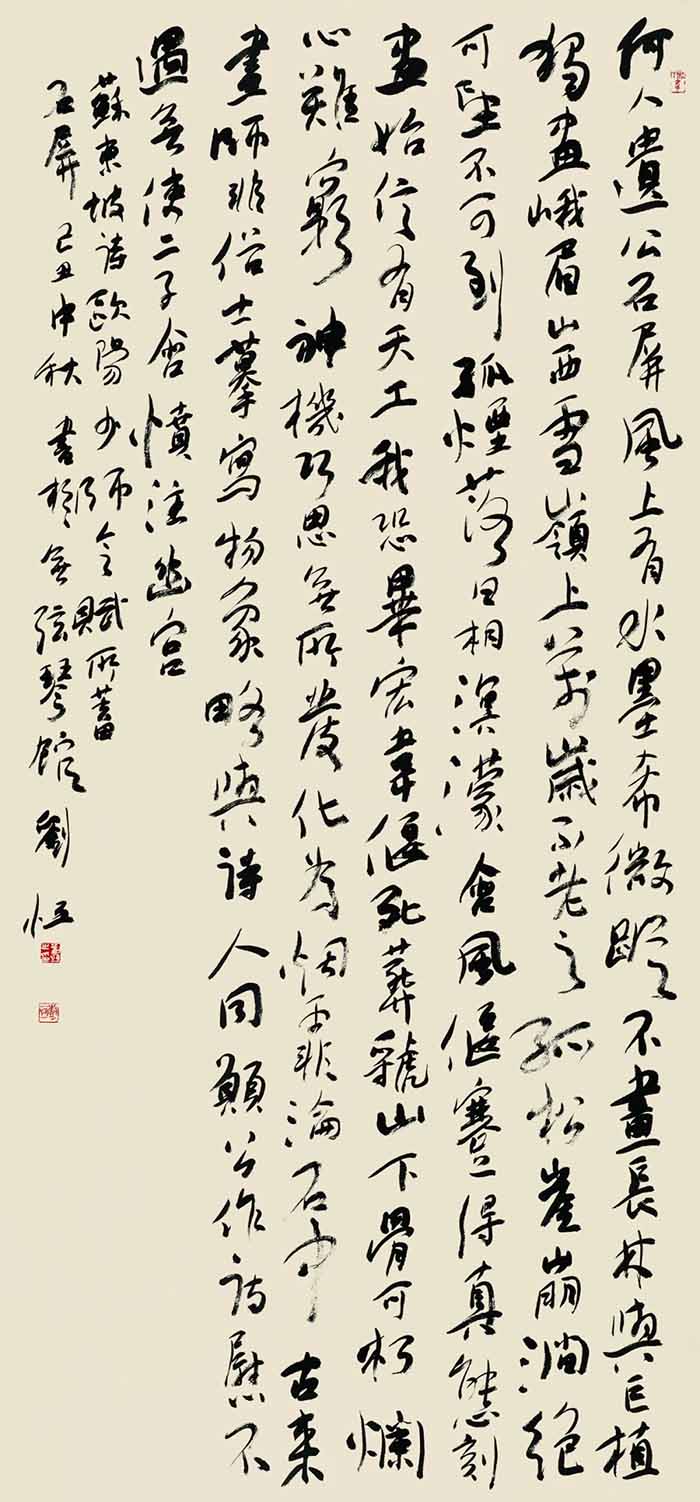 何人遺公石屏風上有水墨希微蹤不畫長林與巨植
獨畫峨眉山西雪嶺上萬歲不老之孤松崖崩澗絕
可望不可到孤煙落日相溟濛含風偃蹇得真態刻
畫始信有天工我恐畢宏韋偃死葬虢山下骨可朽爛
心難窮神機巧思無所發化為烟霏淪石中古來
畫師非俗士摹寫物象略與詩人同願公作詩慰不
遇無使二子含憤泣幽宮
蘇東坡詩歐陽少師令賦所蓄
石屏己丑中秋書於無弦琴館劉恒